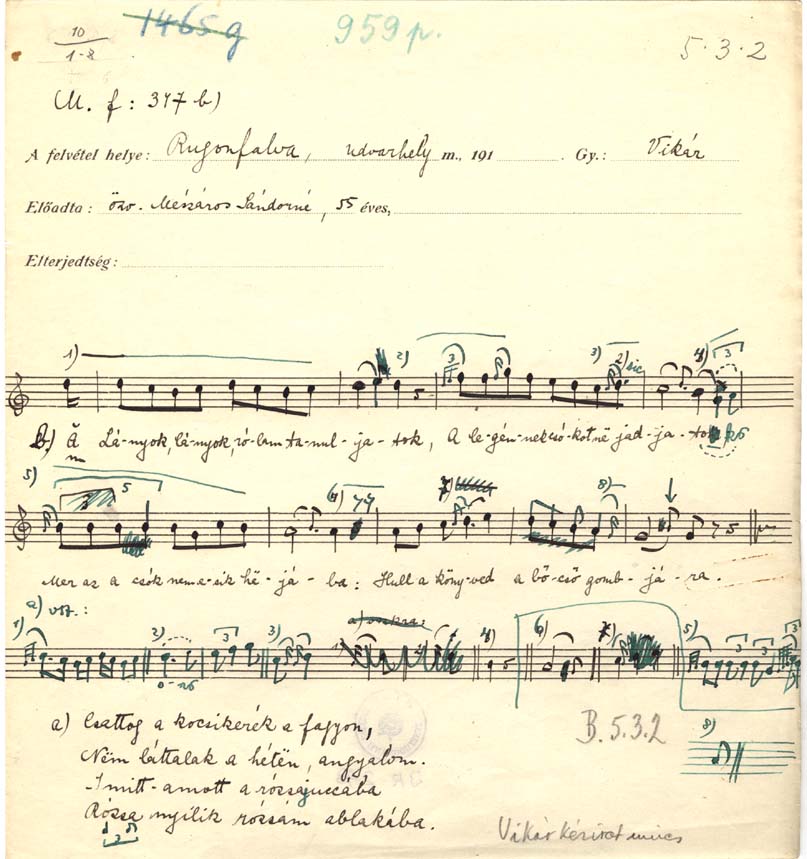 10
1-8
1465 g
959 p.
5·3·2
(M. f: 347 b)
A felvétel helye: Rugonfalva, Udvarhely m., 191 . Gy.: Vikár
Előadta: özv. Mészáros Sándorné, 55 éves,
Elterjedtség:
1) 2) 3 3) 2) sic 4) 3
b.) Ă Lá-nyok, lá-nyok, ró-lam ta-nul-ja-tok, A le-gén-nek csó-kot në jad-ja-tok
5) 5 6) 7) 8)
Mer az a csók nem e-sik hë-já-ba: Hull a köny-ved a bö-cső gomb-já-ra.
a) vsz.:
1) 2) 3) 3 4) 6) 7) 5) 3 3
8)
a) Csattog a kocsikerék a fagyon,
Nëm láttalak a hétën, angyalom.
Imitt-amott a rózsajuccába
Rózsa nyílik rózsám ablakába.
B. 5.3.2
Vikár kézirat nincs